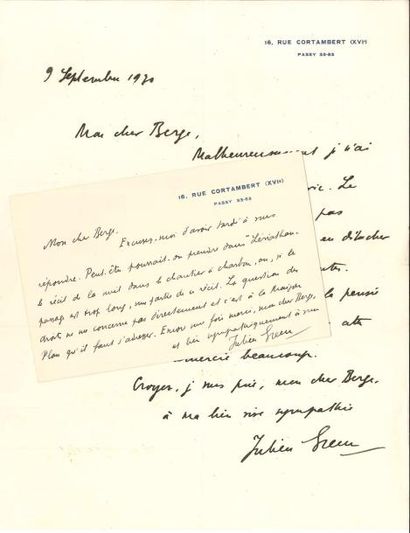 16, RUE CORTAMBERT (XVIe)
PASSY 33-83
9 Septembre 1930
Mon cher Berge,
Malheureusement j'ai
Le
pas
en détacher
la pensée
mercie beaucoup.
Croyez, je vous prie, mon cher Berge,
à ma bien vive sympathie
Julien Green
16, RUE CORTAMBERT (XVIe)
PASSY 33-83
Mon cher Berge, Excusez-moi d'avoir tardé à vous
répondre. Peut-être pourrait-on prendre dans "Léviathan"
le récit de la nuit dans le chantier à charbon, ou, si le
passage est trop long, une partie de ce récit. La question des
droits ne me concerne pas directement et c'est à la maison
Plon qu'il faut s'adresser. Encore une fois merci, mon cher Berge,
et bien sympathiquement à vous
Julien Green